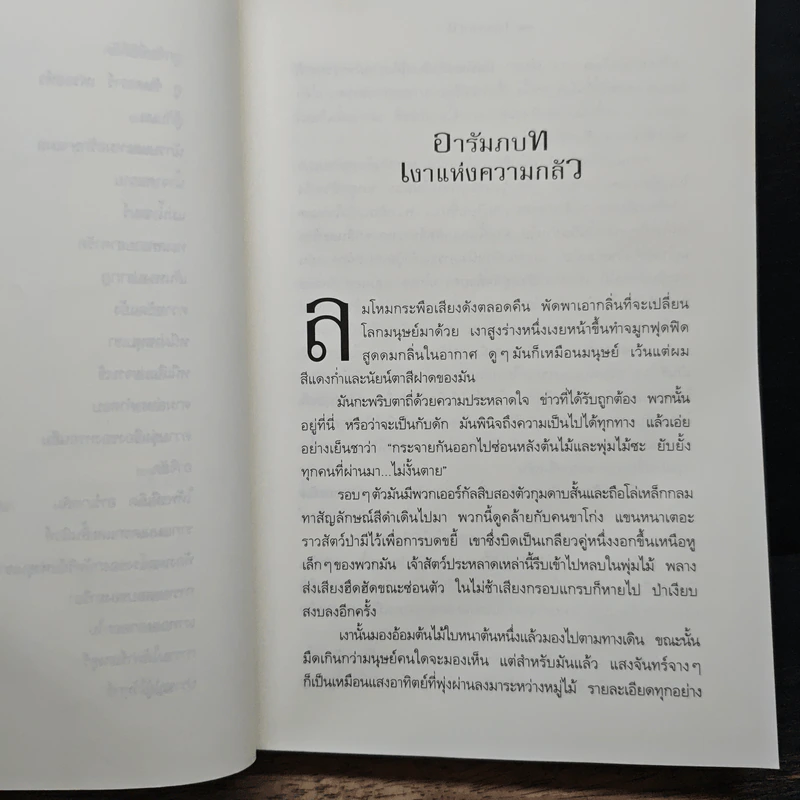 อารัมภบท
เงาแห่งความกลัว
ลมโหมกระพือเสียงดังตลอดคืน พัดพาเอากลิ่นที่จะเปลี่ยน
โลกมนุษย์มาด้วย เงาสูงร่างหนึ่งเงยหน้าขึ้นทำจมูกฟุดฟิด
สูดดมกลิ่นในอากาศ ดูๆ มันก็เหมือนมนุษย์ เว้นแต่ผม
สีแดงก่ำและนัยน์ตาสีฝาดของมัน
มันกะพริบตาถี่ด้วยความประหลาดใจ ข่าวที่ได้รับถูกต้อง พวกนั้น
อยู่ที่นี่ หรือว่าจะเป็นกับดัก มันพินิจถึงความเป็นไปได้ทุกทาง แล้วเอ่ย
อย่างเย็นชาว่า “กระจายกันออกไปซ่อนหลังต้นไม้และพุ่มไม้ซะ ยับยั้ง
ทุกคนที่ผ่านมา...ไม่งั้นตาย”
รอบๆ ตัวมันมีพวกเออร์กัลสิบสองตัวกุมดาบสั้นและถือโล่เหล็กกลม
ทาสัญลักษณ์สีดำเดินไปมา พวกนี้ดูคล้ายกับคนขาโก่ง แขนหนาเตอะ
ราวสัตว์ป่ามีไว้เพื่อการบดขยี้ เขาซึ่งบิดเป็นเกลียวคู่หนึ่งงอกขึ้นเหนือหู
เล็กๆ ของพวกมัน เจ้าสัตว์ประหลาดเหล่านี้รีบเข้าไปหลบในพุ่มไม้ พลาง
ส่งเสียงฮึดฮัดขณะซ่อนตัว ในไม่ช้าเสียงกรอบแกรบก็หายไป ป่าเงียบ
สงบลงอีกครั้ง
เงานั้นมองอ้อมต้นไม้ใบหนาต้นหนึ่งแล้วมองไปตามทางเดิน ขณะนั้น
มืดเกินกว่ามนุษย์คนใดจะมองเห็น แต่สำหรับมันแล้ว แสงจันทร์จางๆ
ก็เป็นเหมือนแสงอาทิตย์ที่พุ่งผ่านลงมาระหว่างหมู่ไม้ รายละเอียดทุกอย่าง